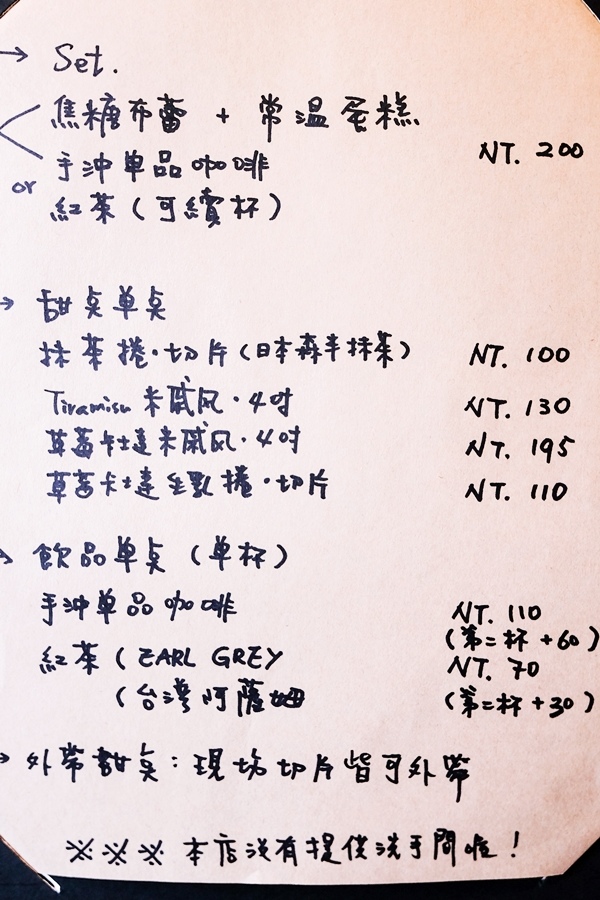 → Set.
焦糖布蕾 + 常溫蛋糕
手沖單品咖啡 NT. 200
or 紅茶(可續杯)
→ 甜点单点
抹茶捲・切片(日本森半抹茶) NT. 100
Tiramisu 米戚风・4吋 NT. 130
草莓卡士達米戚风・4吋 NT. 195
草莓卡士達生乳捲・切片 NT. 110
→ 飲品单点(单杯)
手沖单品咖啡 NT. 110
(第二杯 +60)
紅茶 ( EARL GREY NT. 70
( 台灣阿薩姆 (第二杯 +30)
→ 外帶甜点:現場切片皆可外帶
※※※ 本店沒有提供洗手間啦!